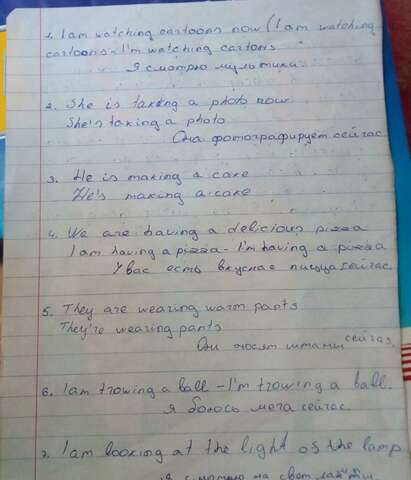 1. I am watching cartoons now (I am watching
cartoons - I'm watching cartons
Я смотрю мультики
2. She is taking a photo now
She's taking a photo
Она фотографирует сейчас
3. He is making a cake
He's making a cake
4. We are having a delicious pizza
I am having a pizza - I'm having a pizza
У вас есть вкусная пицца сейчас
5. They are wearing warm pants
They're wearing pants
Они носят штаны сейчас.
6. I am trowing a ball - I'm trowing a ball.
я боюсь мяча сейчас.
7. I am looking at the light of the lamp
я смотрю на свет